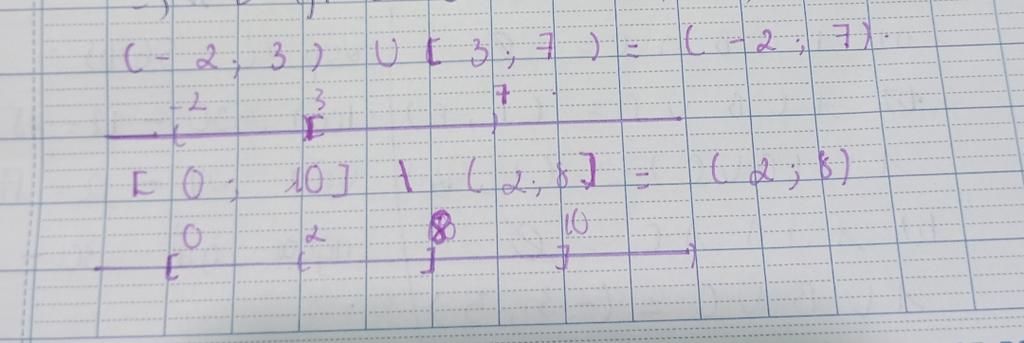 (-2; 3) ∪ [3; 7) = (-2; 7).
-2 3 7
[0; 10] \ (2; 8] = (2; 8)
0 2 8 10